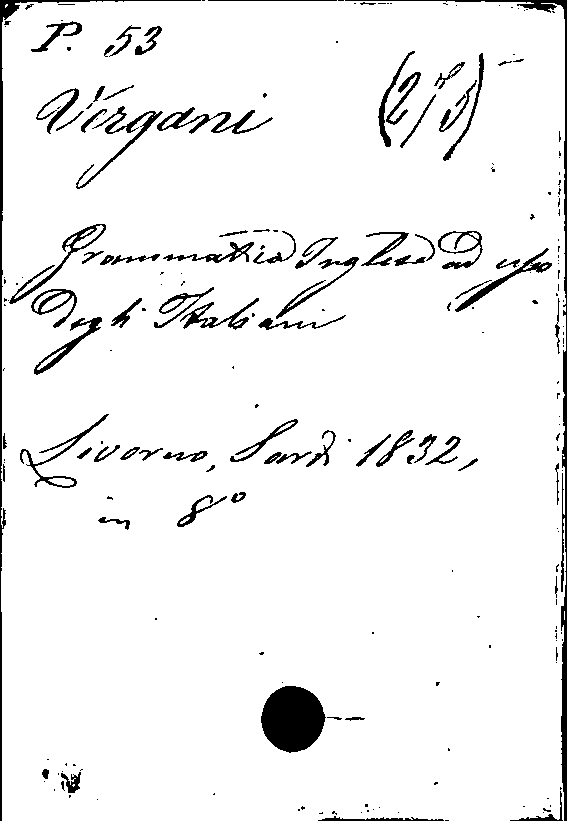 P. 53
Vergani (275)
Grammatica Inglese ad uso
degli Italiani
Livorno, Sardi 1832,
in 8°